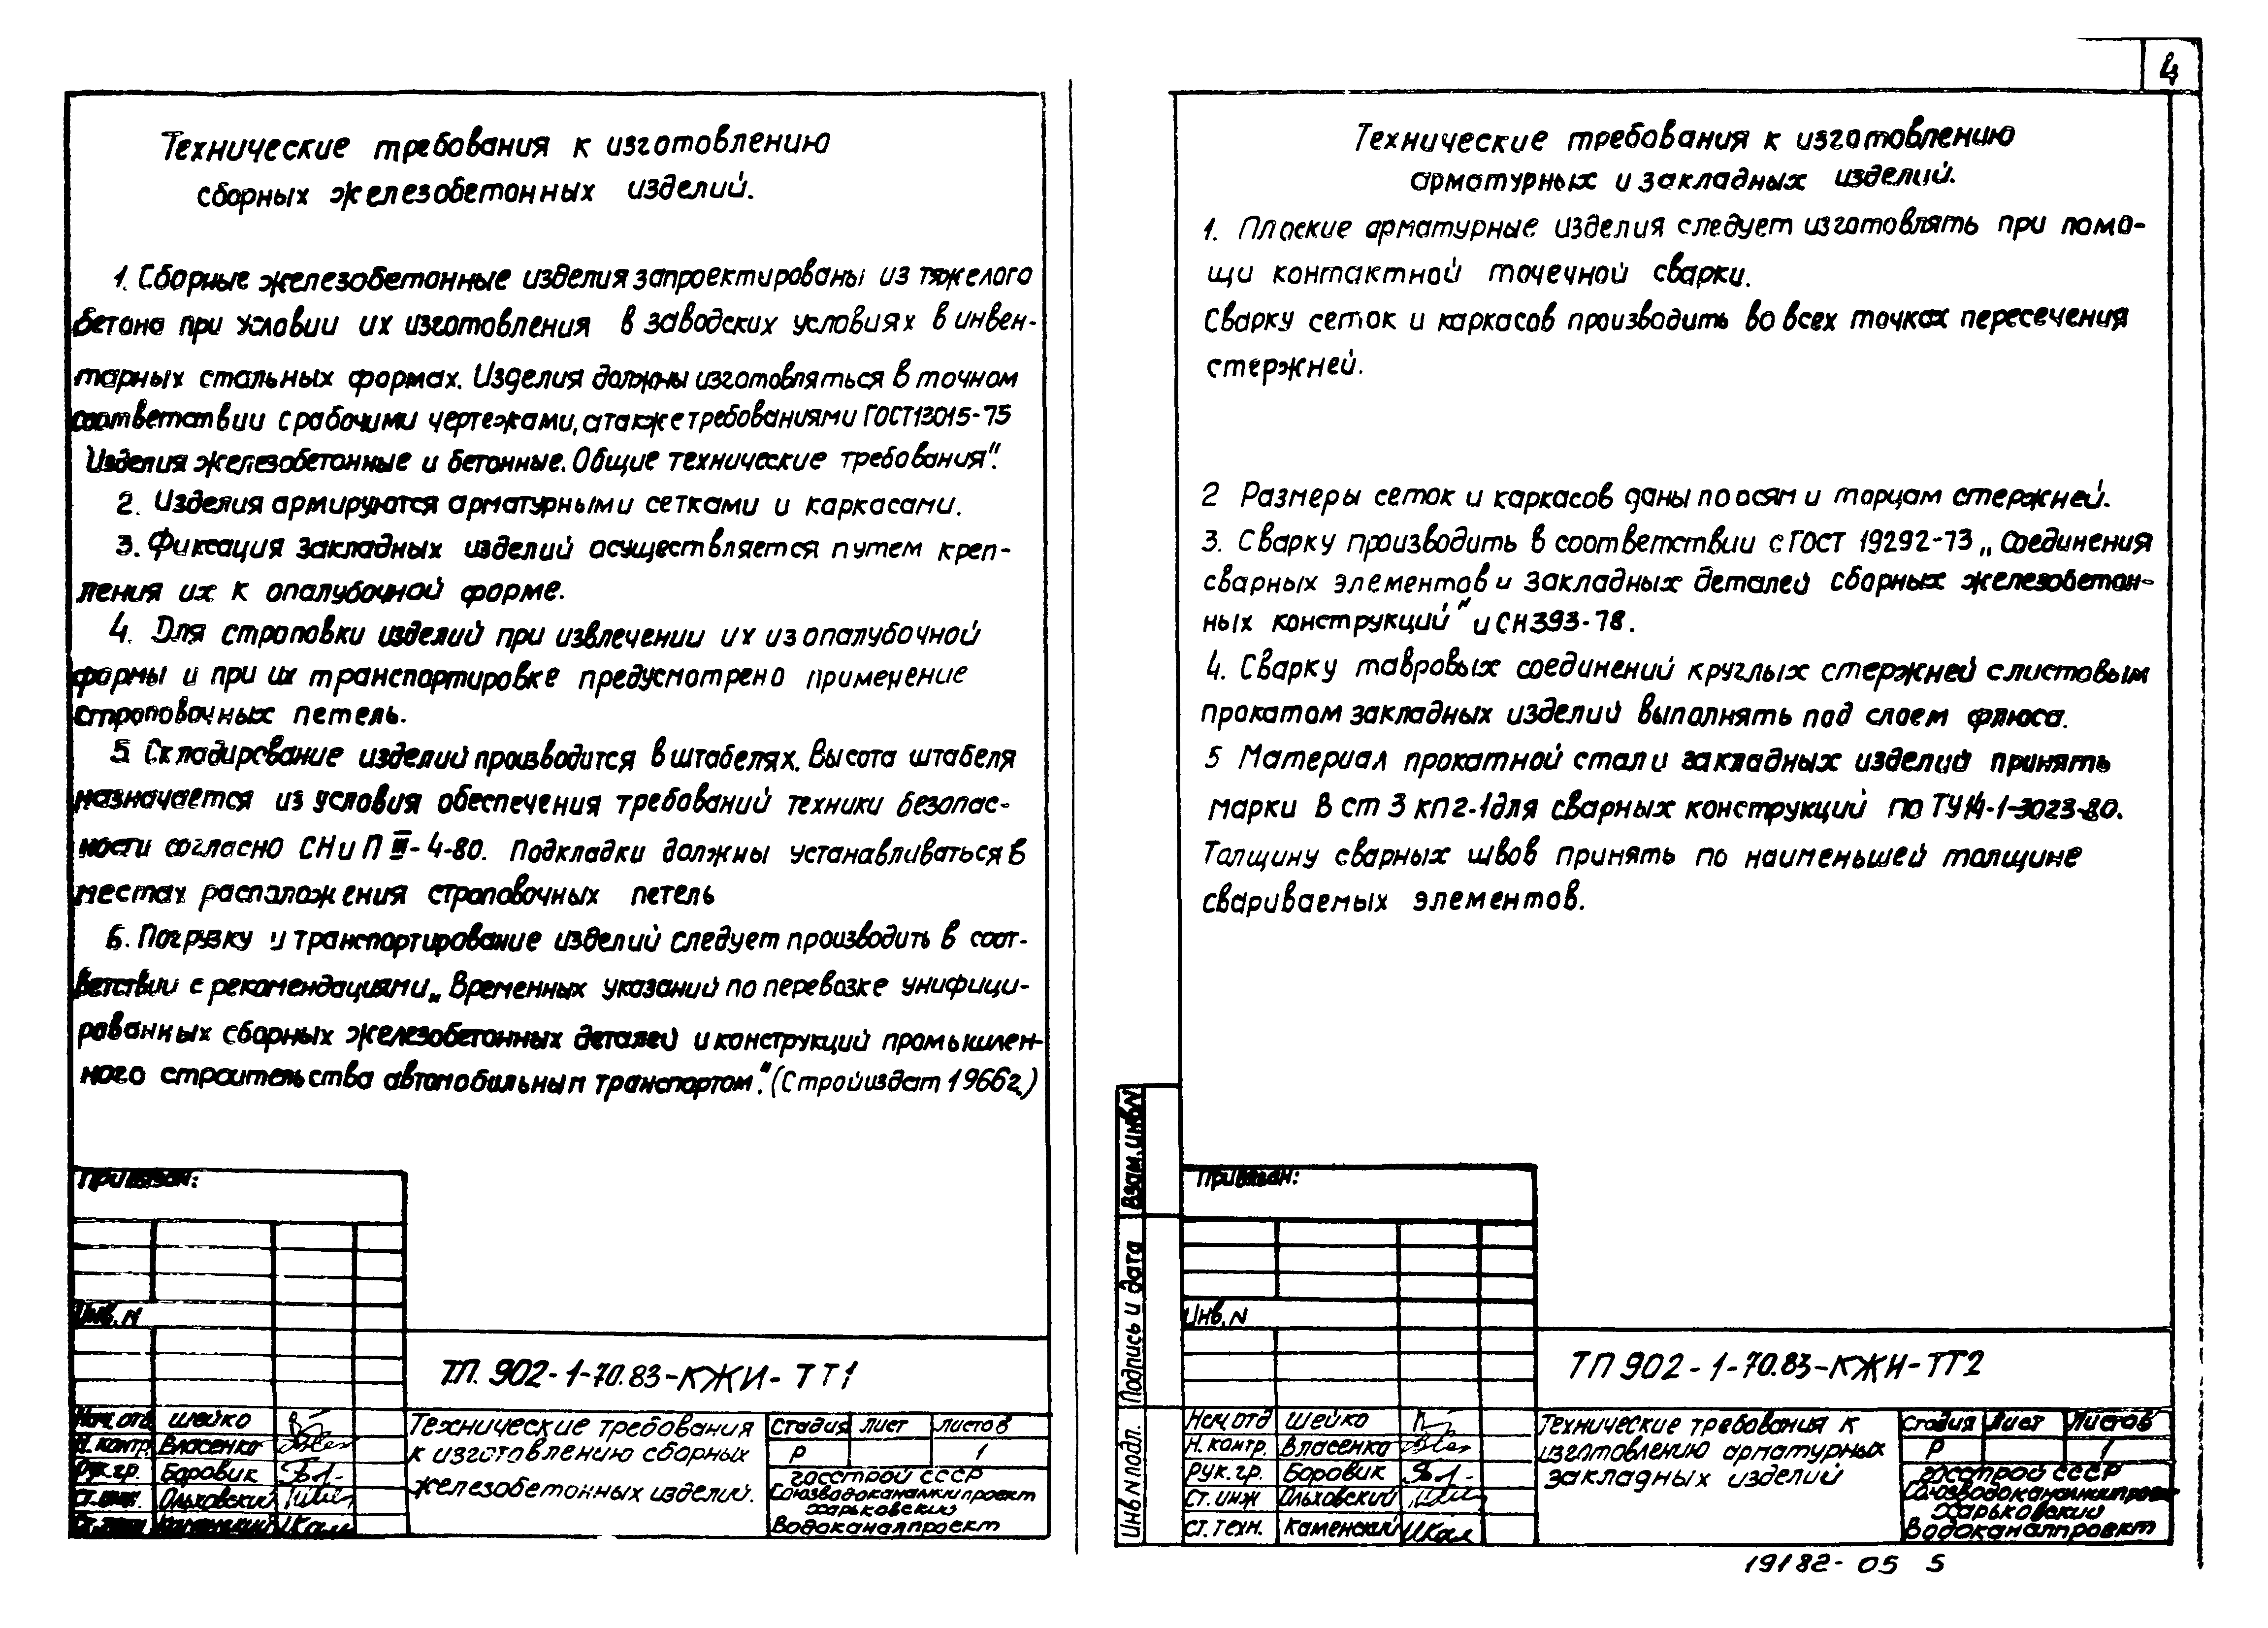 4
Технические требования к изготовлению
сборных железобетонных изделий.
1. Сборные железобетонные изделия запроектированы из тяжелого
бетона при условии их изготовления в заводских условиях в инвен-
тарных стальных формах. Изделия должны изготовляться в точном
соответствии с рабочими чертежами, а также требованиями ГОСТ 13015-75
Изделия железобетонные и бетонные. Общие технические требования".
2. Изделия армируются арматурными сетками и каркасами.
3. Фиксация закладных изделий осуществляется путем креп-
ления их к опалубочной форме.
4. Для строповки изделий при извлечении их из опалубочной
формы и при их транспортировке предусмотрено применение
строповочных петель.
5. Складирование изделий производится в штабелях. Высота штабеля
назначается из условия обеспечения требований техники безопас-
ности согласно СНиП III-4-80. Подкладки должны устанавливаться в
местах расположения строповочных петель
6. Погрузку и транспортирование изделий следует производить в соот-
ветствии с рекомендациями „Временных указаний по перевозке унифици-
рованных сборных железобетонных деталей и конструкций промышлен-
ного строительства автомобильным транспортом." (Стройиздат 1966г.)
Привязан:
Инв. N
ТП. 902-1-70.83-КЖИ-ТТ1
Нач. отд. Шейко
Н. контр. Власенко
Рук. гр. Боровик
Ст. инж. Ольховский
Ст. техн. Каменский
Технические требования
к изготовлению сборных
железобетонных изделий.
Стадия Лист Листов
Р 1
Госстрой СССР
Союзводоканалниипроект
Харьковский
Водоканалпроект
Технические требования к изготовлению
арматурных и закладных изделий.
1. Плоские арматурные изделия следует изготовлять при помо-
щи контактной точечной сварки.
Сварку сеток и каркасов производить во всех точках пересечения
стержней.
2 Размеры сеток и каркасов даны по осям и торцам стержней.
3. Сварку производить в соответствии с ГОСТ 19292-73 „Соединения
сварных элементов и закладных деталей сборных железобетон-
ных конструкций" и СН 393-78.
4. Сварку тавровых соединений круглых стержней с листовым
прокатом закладных изделий выполнять под слоем флюса.
5 Материал прокатной стали закладных изделий принять
марки В Ст 3 кп 2-1 для сварных конструкций по ТУ 14-1-3023-80.
Толщину сварных швов принять по наименьшей толщине
свариваемых элементов.
Взам. инв N
Подпись и дата
Инв N подл.
Привязан:
Инв. N
ТП 902-1-70.83-КЖИ-ТТ2
Нач отд Шейко
Н. контр. Власенко
Рук. гр. Боровик
Ст. инж Ольховский
Ст. техн. Каменский
Технические требования к
изготовлению арматурных
закладных изделий
Стадия Лист Листов
Р 1
Госстрой СССР
Союзводоканалниипроект
Харьковский
Водоканалпроект
19182-05 5